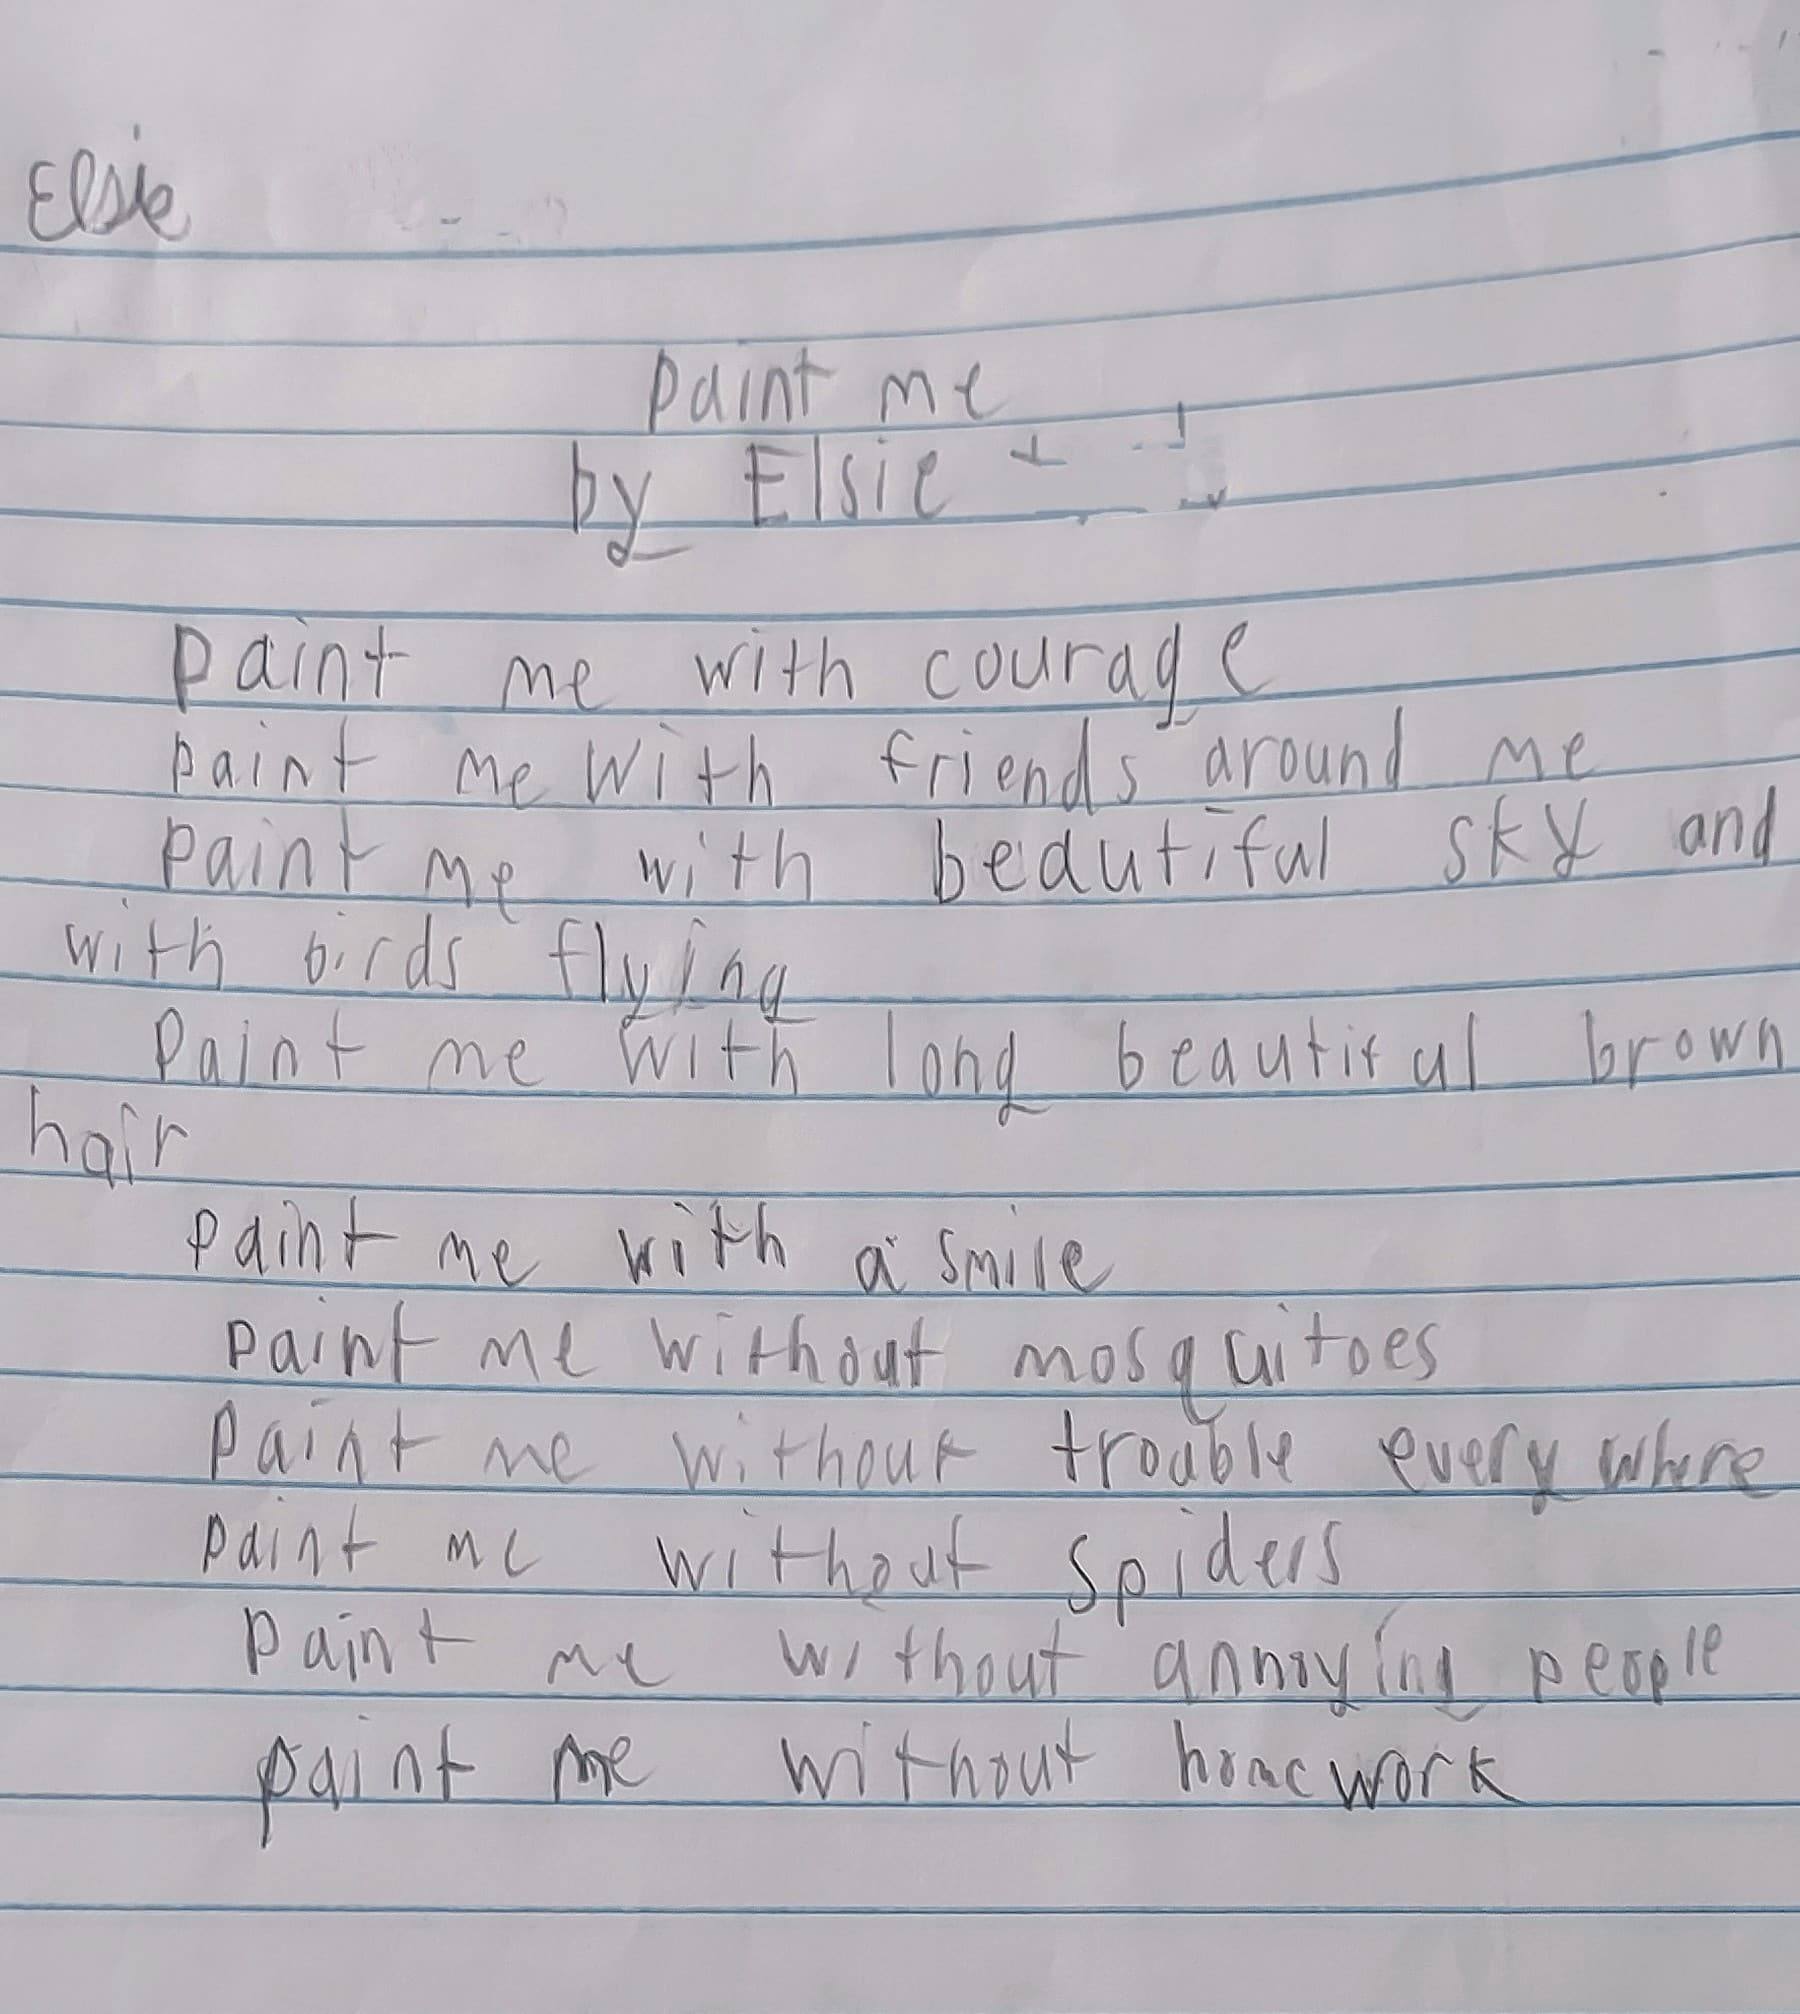 Elsie
paint me
by Elsie
paint me with courage
paint me with friends around me
paint me with beautiful sky and
with birds flying
Paint me with long beautiful brown
hair
paint me with a smile
paint me without mosquitoes
paint me without trouble everywhere
paint me without spiders
paint me without annoying people
paint me without homework